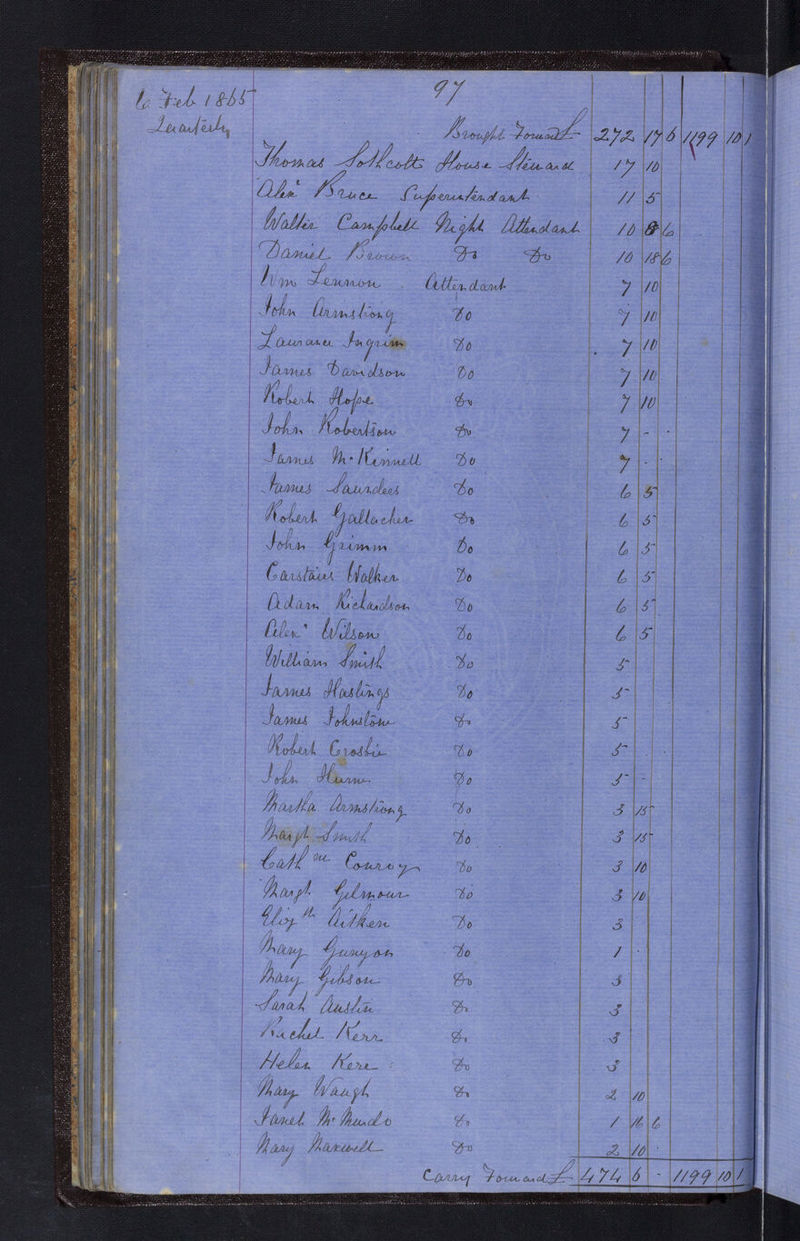 97
6 Feb 1865
Quarterly
Brought Forward £ 272 17 6 1199 10 1
Thomas Sothcott House Steward 17 10
Alexr Bruce Superintendant 11 5
Walter Campbell Night Attendant 10 8 6
Daniel Brown Do Do 10 18 6
Wm Lennon Attendant 7 10
John Armstrong Do 7 10
Laurance Ingrim Do 7 10
James Davidson Do 7 10
Robert Hope Do 7 10
John Robertson Do 7 -
James McKinnell Do 7 -
James Saunders Do 6 5
Robert Gallacher Do 6 5
John Grimm Do 6 5
Carstairs Walker Do 6 5
Adam Richardson Do 6 5
Alexr Wilson Do 6 5
William Smith Do 5
James Hastings Do 5
James Johnstone Do 5
Robert Crosbie Do 5
John Hume Do 5 -
Martha Armstrong Do 3 15
Margt Smith Do 3 15
Cathne Conroy Do 3 10
Margt Gilmour Do 3 10
Elizth Aitken Do 3
Mary Gunyon Do 1
Mary Gibson Do 3
Sarah Austin Do 3
Rachel Kerr Do 3
Helen Kerr Do 3
Mary Waugh Do 2 10
Janet McMurdo Do 1 16 6
Mary Maxwell Do 2 10
Carry Forward £ 474 6 - 1199 10 1